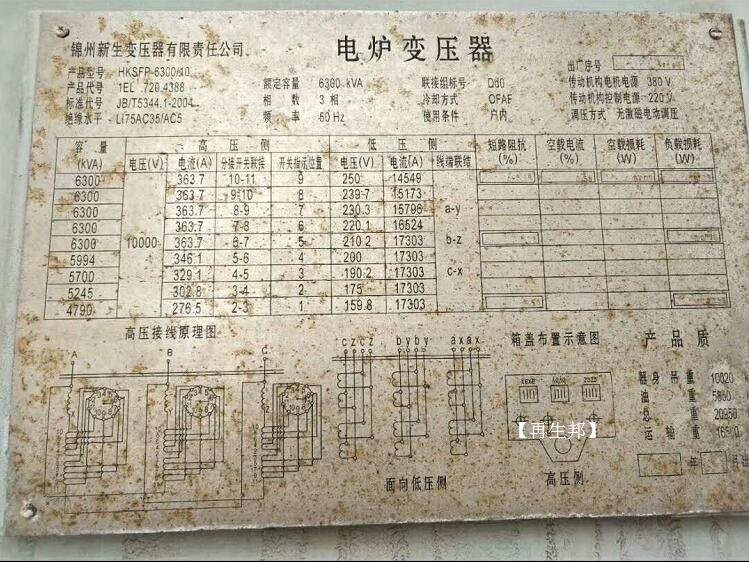 锦州新生变压器有限责任公司
电炉变压器
出厂序号
产品型号 HKSFP-6300/10 额定容量 6300 kVA 联接组标号 Dd0 传动机构电机电源 380 V
产品代号 1EL.720.4388 相数 3 相 冷却方式 OFAF 传动机构控制电源 220 V
标准代号 JB/T5344.1-2004 频率 50 Hz 使用条件 户内 调压方式 无激磁电动调压
绝缘水平 LI75AC35/AC5
容量(kVA) 高压侧 低压侧 短路阻抗(%) 空载电流(%) 空载损耗(W) 负载损耗(W)
电压(V) 电流(A) 分接开关联接 开关指示位置 电压(V) 电流(A) 线端联结
6300 363.7 10-11 9 250 14549
6300 363.7 9-10 8 239.7 15173
6300 363.7 8-9 7 230.3 15796 a-y
6300 363.7 7-8 6 220.1 16524
6300 10000 363.7 6-7 5 210.2 17303 b-z
5994 346.1 5-6 4 200 17303
5700 329.1 4-5 3 190.2 17303 c-x
5245 302.8 3-4 2 175 17303
4790 276.5 2-3 1 159.8 17303
高压接线原理图
A B C
c z c z b y b y a x a x
面向低压侧
箱盖布置示意图
高压侧
产品质
器身吊重 10020
油重
总重 20950
运输重
年 月
【再生邦】